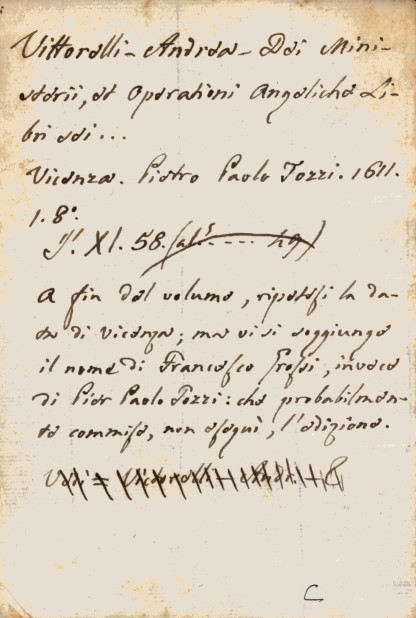 Vittorelli - Andrea - Dei Mini-
sterii, et Operationi Angeliche Li-
bri sei...
Vicenza. Pietro Paolo Tozzi. 1611.
1. 8°.
XI. 58.
A fin del volume, ripetesi la da-
ta di Vicenza; ma vi si soggiunge
il nome di Francesco Grossi, invece
di Pier Paolo Tozzi: che probabilmen-
te commise, non eseguì, l'edizione.
Vedi =
C